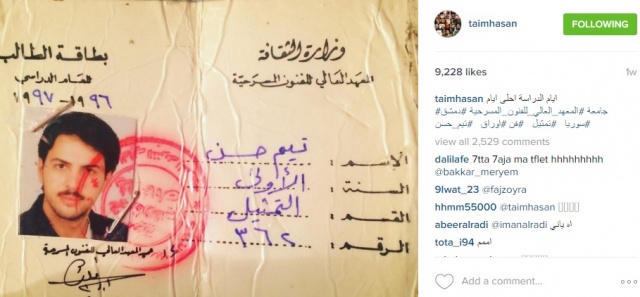 بطاقة الطالب
للعام الدراسي
١٩٩٦ - ١٩٩٧
وزارة الثقافة
المعهد العالي للفنون المسرحية
الاسم : تيم حسن
السنة : الأولى
القسم : التمثيل
الرقم : ٣٦٢
عميد المعهد العالي للفنون المسرحية
taimhasan
FOLLOWING
9,228 likes
1w
taimhasan ايام الدراسة احلى ايام
جامعة #المعهد_العالي_للفنون_المسرحية #دمشق#
#سوريا #تمثيل #فن #اوراق #تيم_حسن
view all 2,529 comments
dalilafe 7tta 7aja ma tflet hhhhhhhhh
@bakkar_meryem
9lwat_23 @fajzoyra
hhmm55000 @taimhasan
abeeralradi @imanalradi اه ياني
tota_i94 اممم
Add a comment...